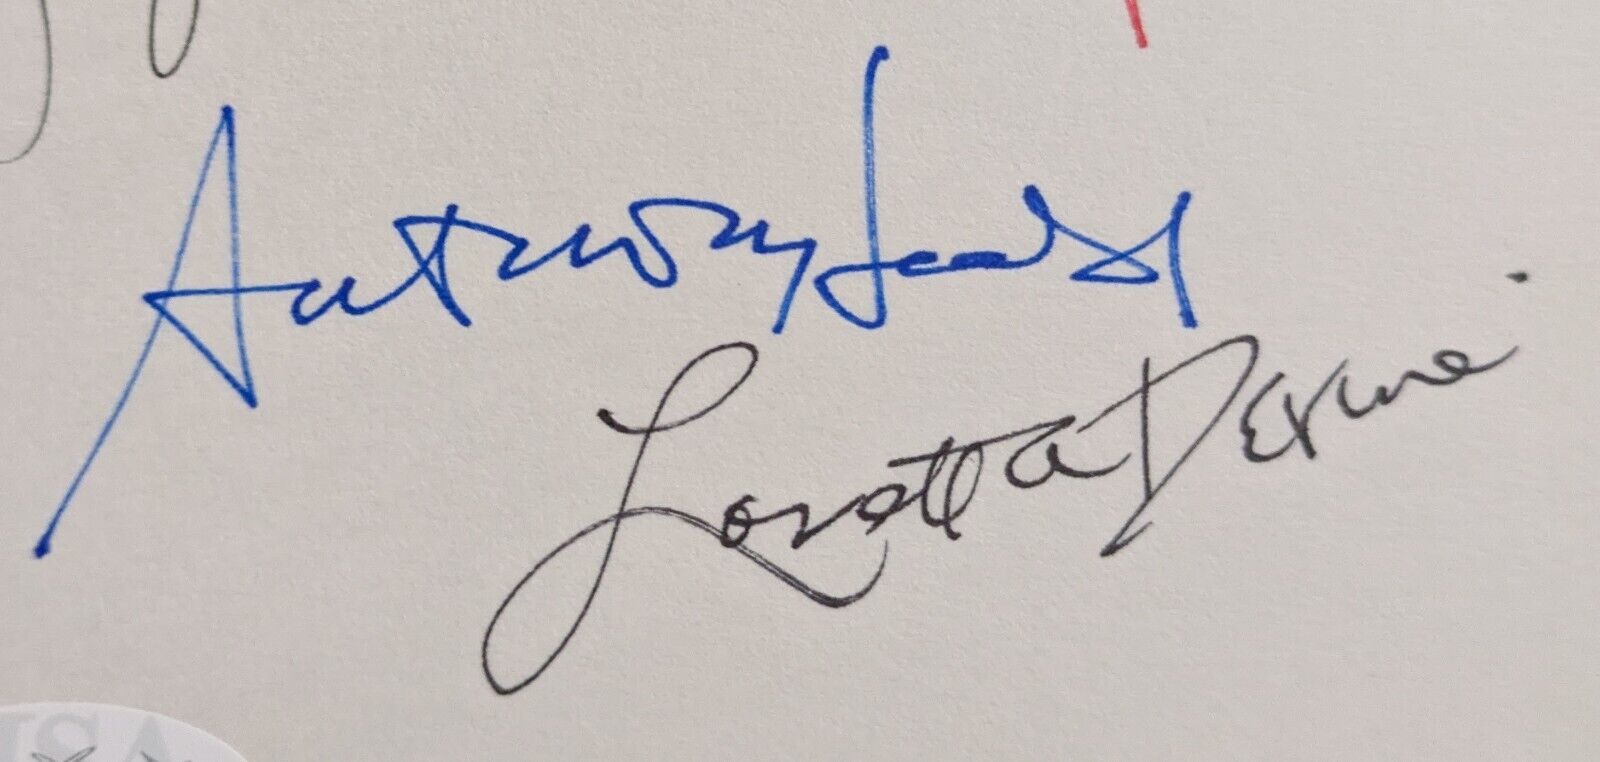 Anthony Heald
Loretta Devine
JSA